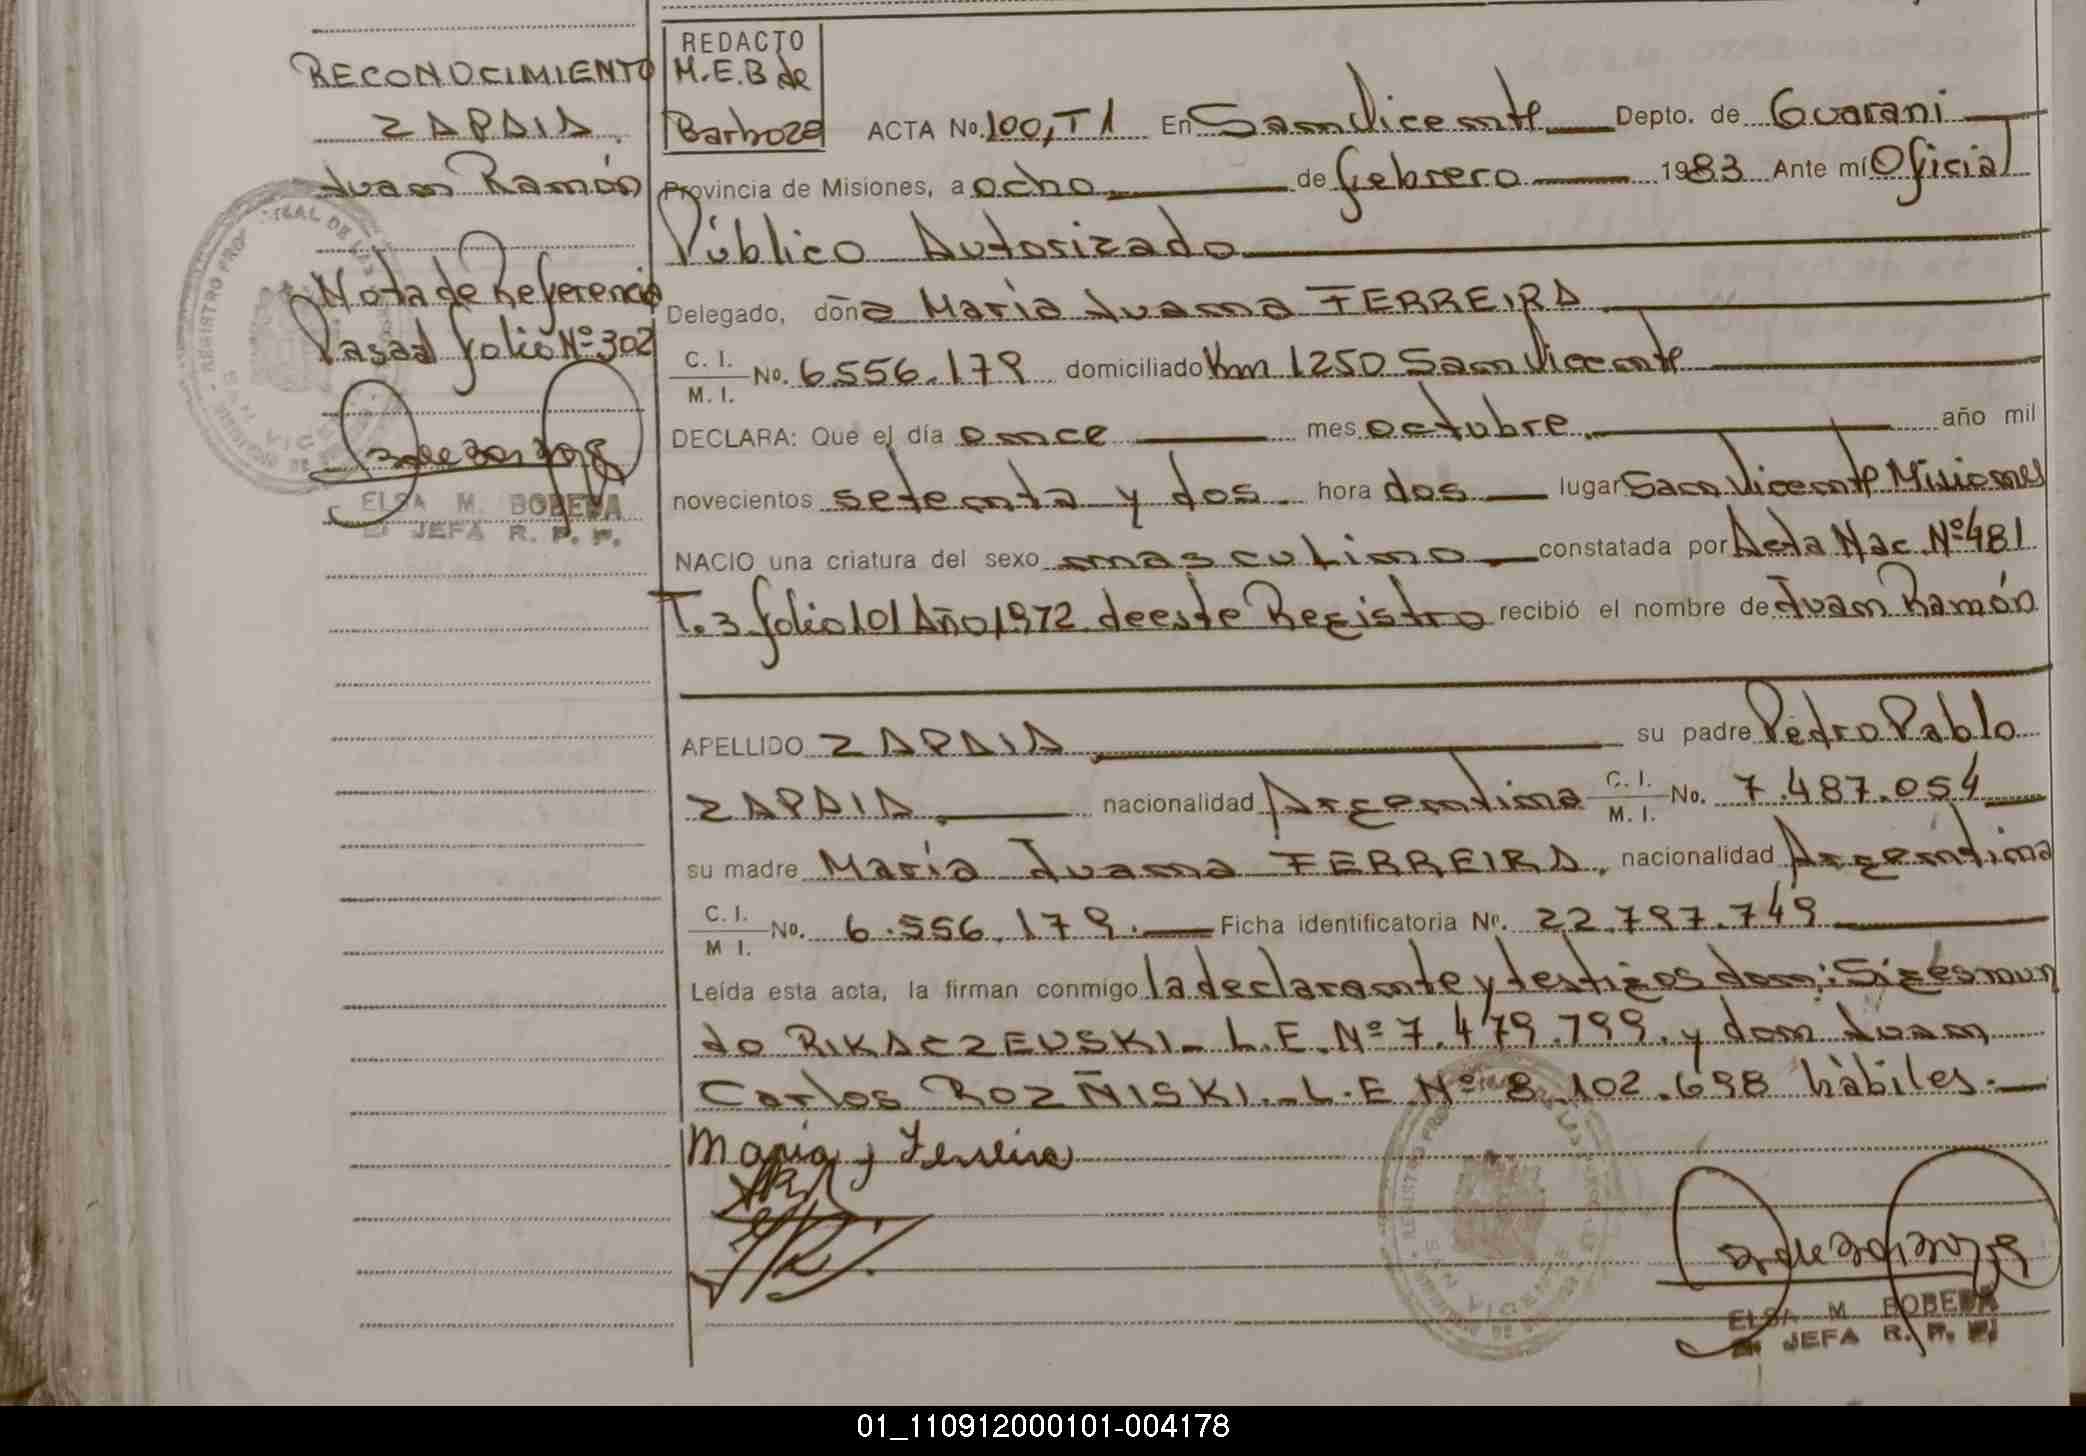 RECONOCIMIENTO
ZAPAIA
Juan Ramón
Nota de Referencia
Pasa al folio Nº 302
ELSA M. BOBEDA
JEFA R. P. P.
REDACTO
M.E.B de
Barboza
ACTA No. 100, T1 En San Vicente Depto. de Guarani
Provincia de Misiones, a ocho de febrero 1983 Ante mí Oficial
Público Autorizado
Delegado, doña María Juana FERREIRA
C. I. / M. I. No. 6.556.179 domiciliado Km 1250 San Vicente
DECLARA: Que el día once mes octubre año mil
novecientos setenta y dos. hora dos lugar San Vicente Misiones
NACIO una criatura del sexo masculino constatada por Acta Nac. Nº 481
T. 3 folio 101 Año 1972 de este Registro recibió el nombre de Juan Ramón
APELLIDO ZAPAIA su padre Pedro Pablo
ZAPAIA nacionalidad Argentina C. I. / M. I. No. 7.487.054
su madre María Juana FERREIRA, nacionalidad Argentina
C. I. / M I. No. 6.556.179. Ficha identificatoria Nº. 22.797.749
Leída esta acta, la firman conmigo la declarante y testigos don: Sigesmun
do RIKACZEVSKI - L.E. Nº 7.479.799. y don Juan
Carlos ROZÑISKI. - L.E. Nº 8.102.698 hàbiles.
Maria J Ferreira
SAN VICENTE
ELSA M BOBEDA
JEFA R. P. P.
01_110912000101-004178